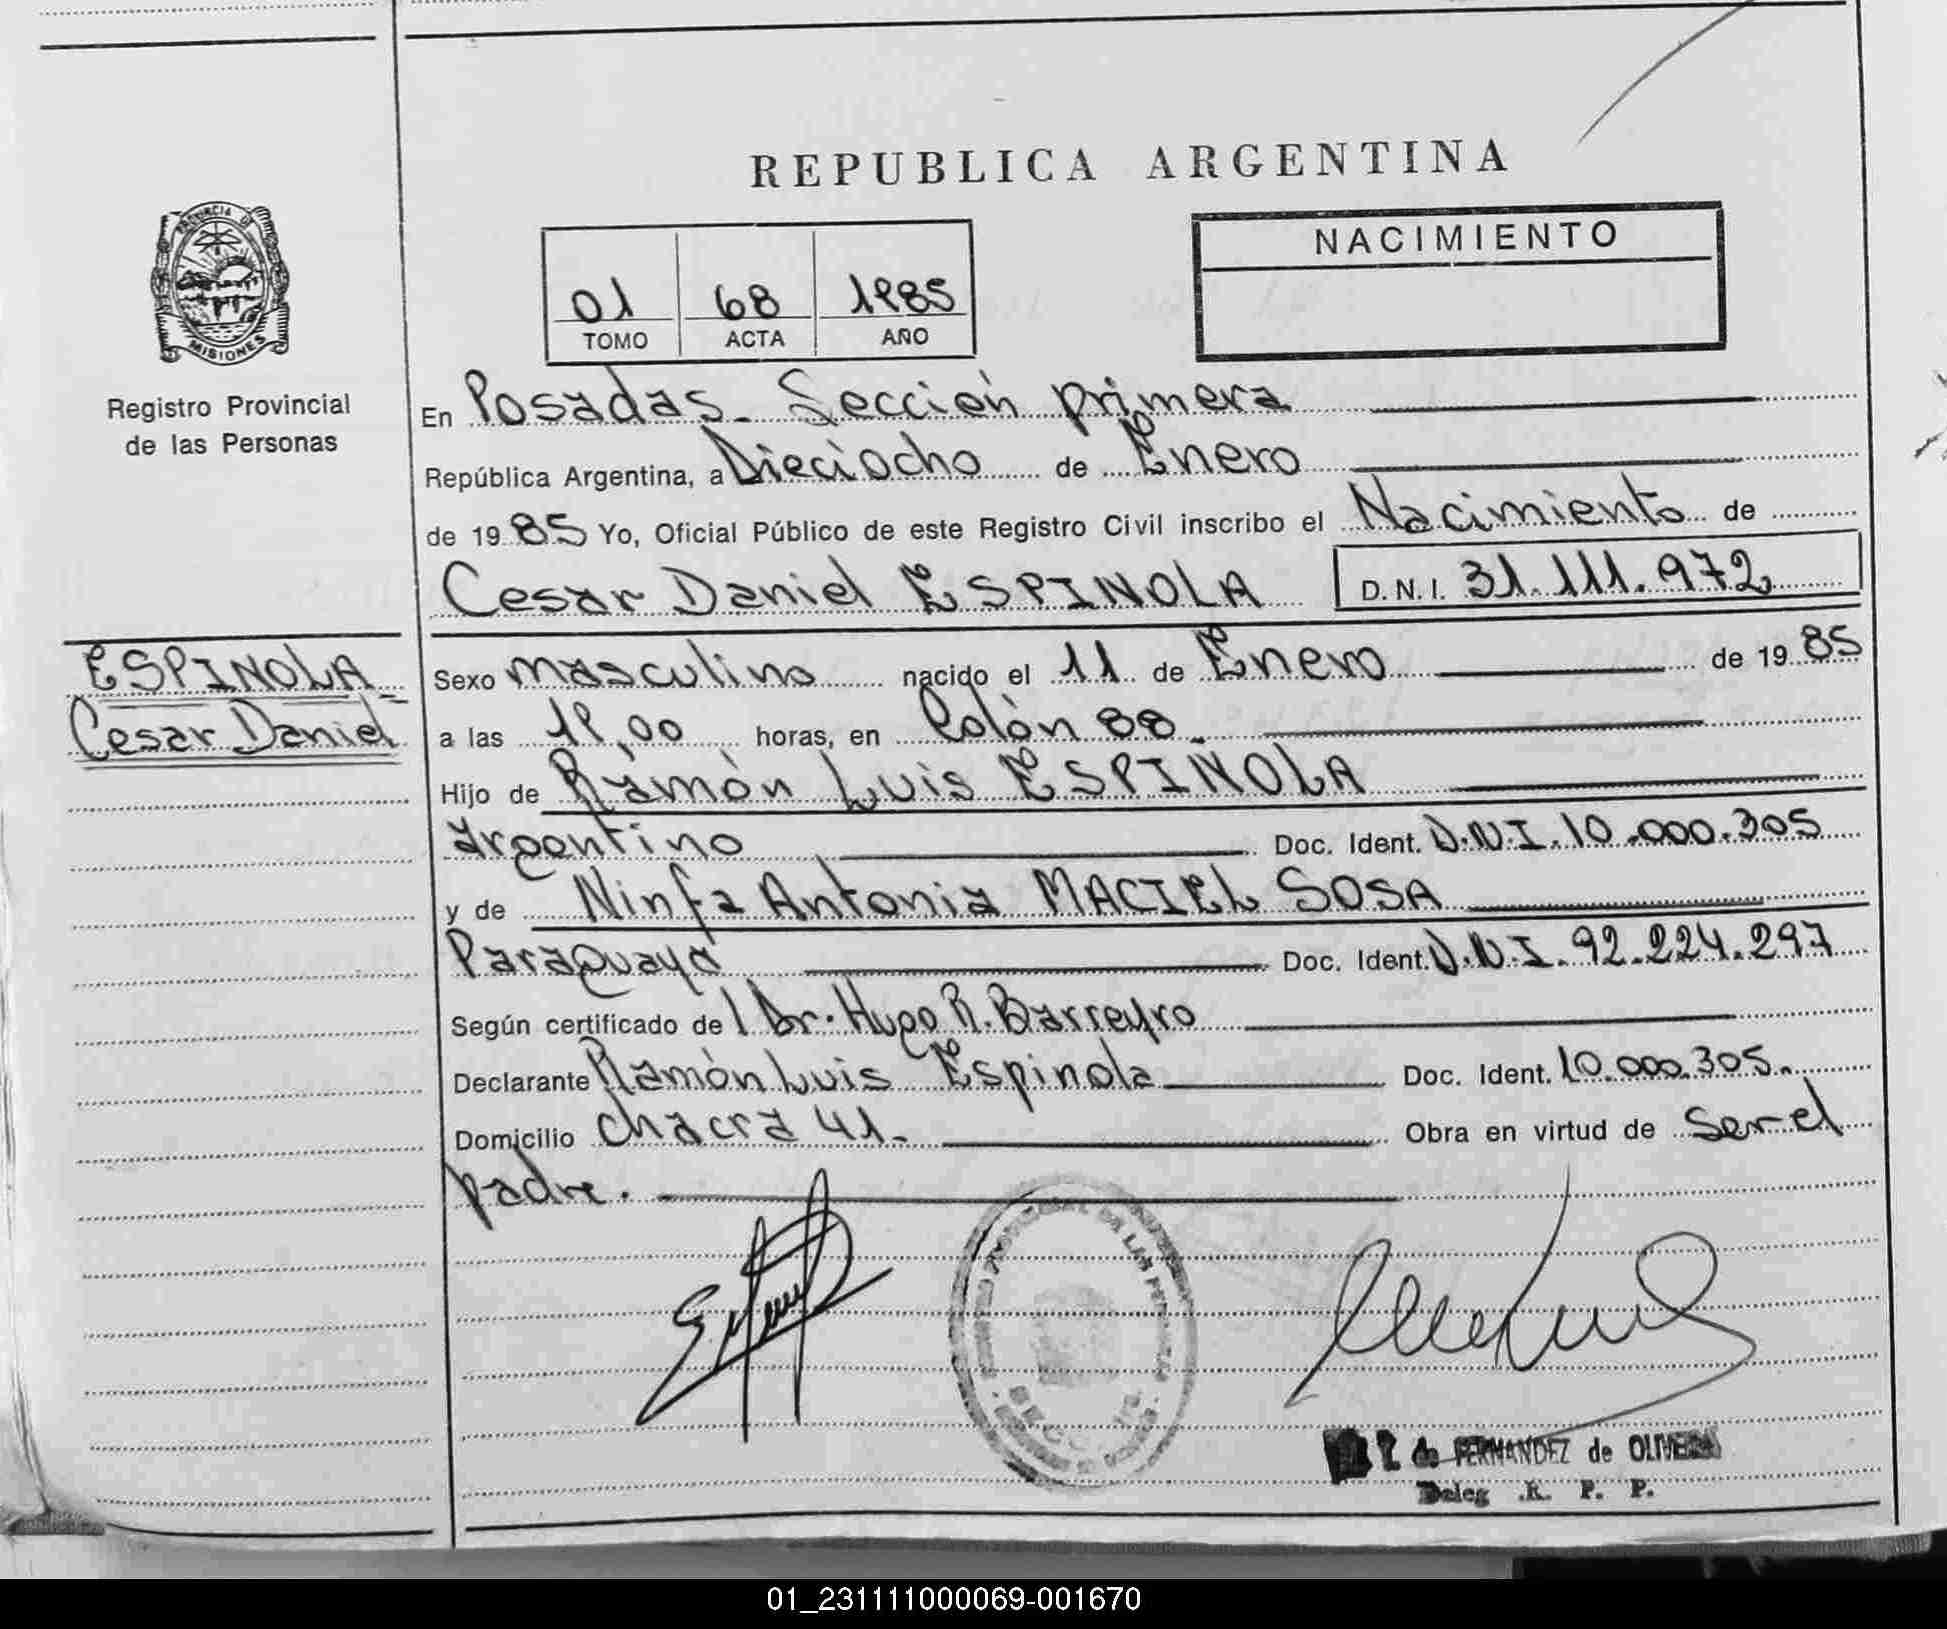 REPUBLICA ARGENTINA
PROVINCIA DE
MISIONES
Registro Provincial
de las Personas
01 68 1985
TOMO ACTA AÑO
NACIMIENTO
En Posadas. Sección primera
República Argentina, a Dieciocho de Enero
de 1985 Yo, Oficial Público de este Registro Civil inscribo el Nacimiento de
Cesar Daniel ESPINOLA D.N.I. 31.111.972
ESPINOLA
Cesar Daniel
Sexo masculino nacido el 11 de Enero de 1985
a las horas, en Colón 88.
Hijo de Ramón Luis ESPINOLA
argentino Doc. Ident. D.N.I. 10.000.305
y de Ninfa Antonia MACIEL SOSA
Paraguaya Doc. Ident. D.N.I. 92.224.297
Según certificado del Dr. Hugo R. Barreyro
Declarante Ramón Luis Espinola Doc. Ident. 10.000.305.
Domicilio chacra 41. Obra en virtud de ser el
padre.
de FERNANDEZ de OLIVERA
Deleg .R. P. P.
01_231111000069-001670